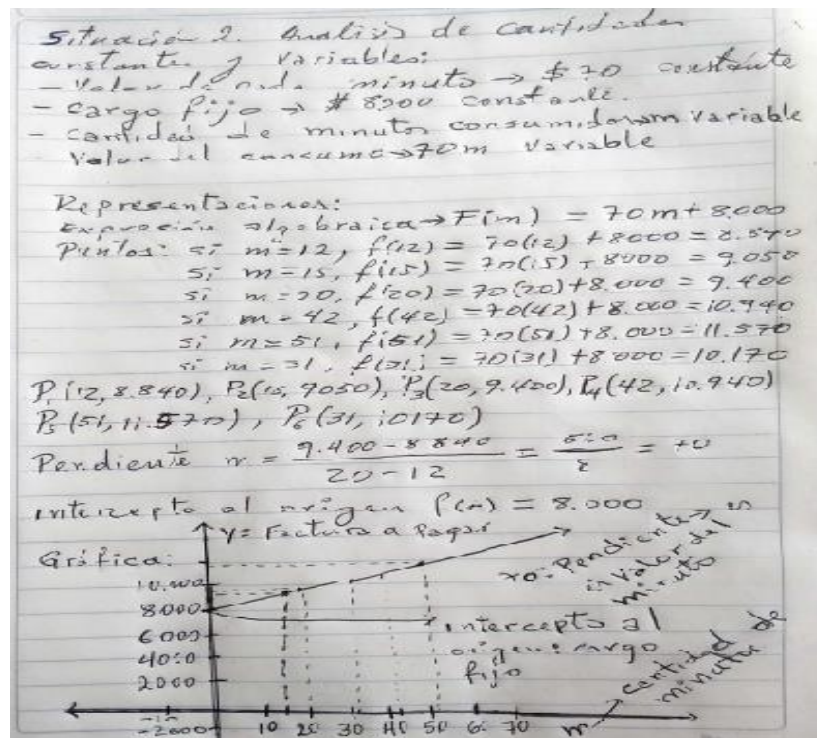 Situación 2. Analisis de cantidades
constantes y variables:
- Valor de cada minuto → $ 70 constante
- Cargo fijo → $ 8000 constante.
- Cantidad de minutos consumidos m variable
Valor del consumo → 70m variable
Representaciones:
Expresión algebraica → F(m) = 70m + 8.000
Puntos: si m = 12, f(12) = 70(12) + 8000 =
si m = 15, f(15) = 70(15) + 8000 = 9.050
si m = 20, f(20) = 70(20) + 8.000 = 9.400
si m = 42, f(42) = 70(42) + 8.000 = 10.940
si m = 51, f(51) = 70(51) + 8.000 = 11.570
si m = 31, f(31) = 70(31) + 8000 = 10.170
P1(12, 8.840), P2(15, 9050), P3(20, 9.400), P4(42, 10.940)
P5(51, 11.570), P6(31, 10170)
Pendiente m = 9.400 - 8840 / 20 - 12 = 560 / 8 = 70
intercepto al origen = 8.000
y = Factura a Pagar
Gráfica:
70: Pendiente → es
valor del
minuto
10.000
8.000
6000
4000
2000
-2000
intercepto al
origen: cargo
fijo
10 20 30 40 50 60 70
m → cantidad de
minutos